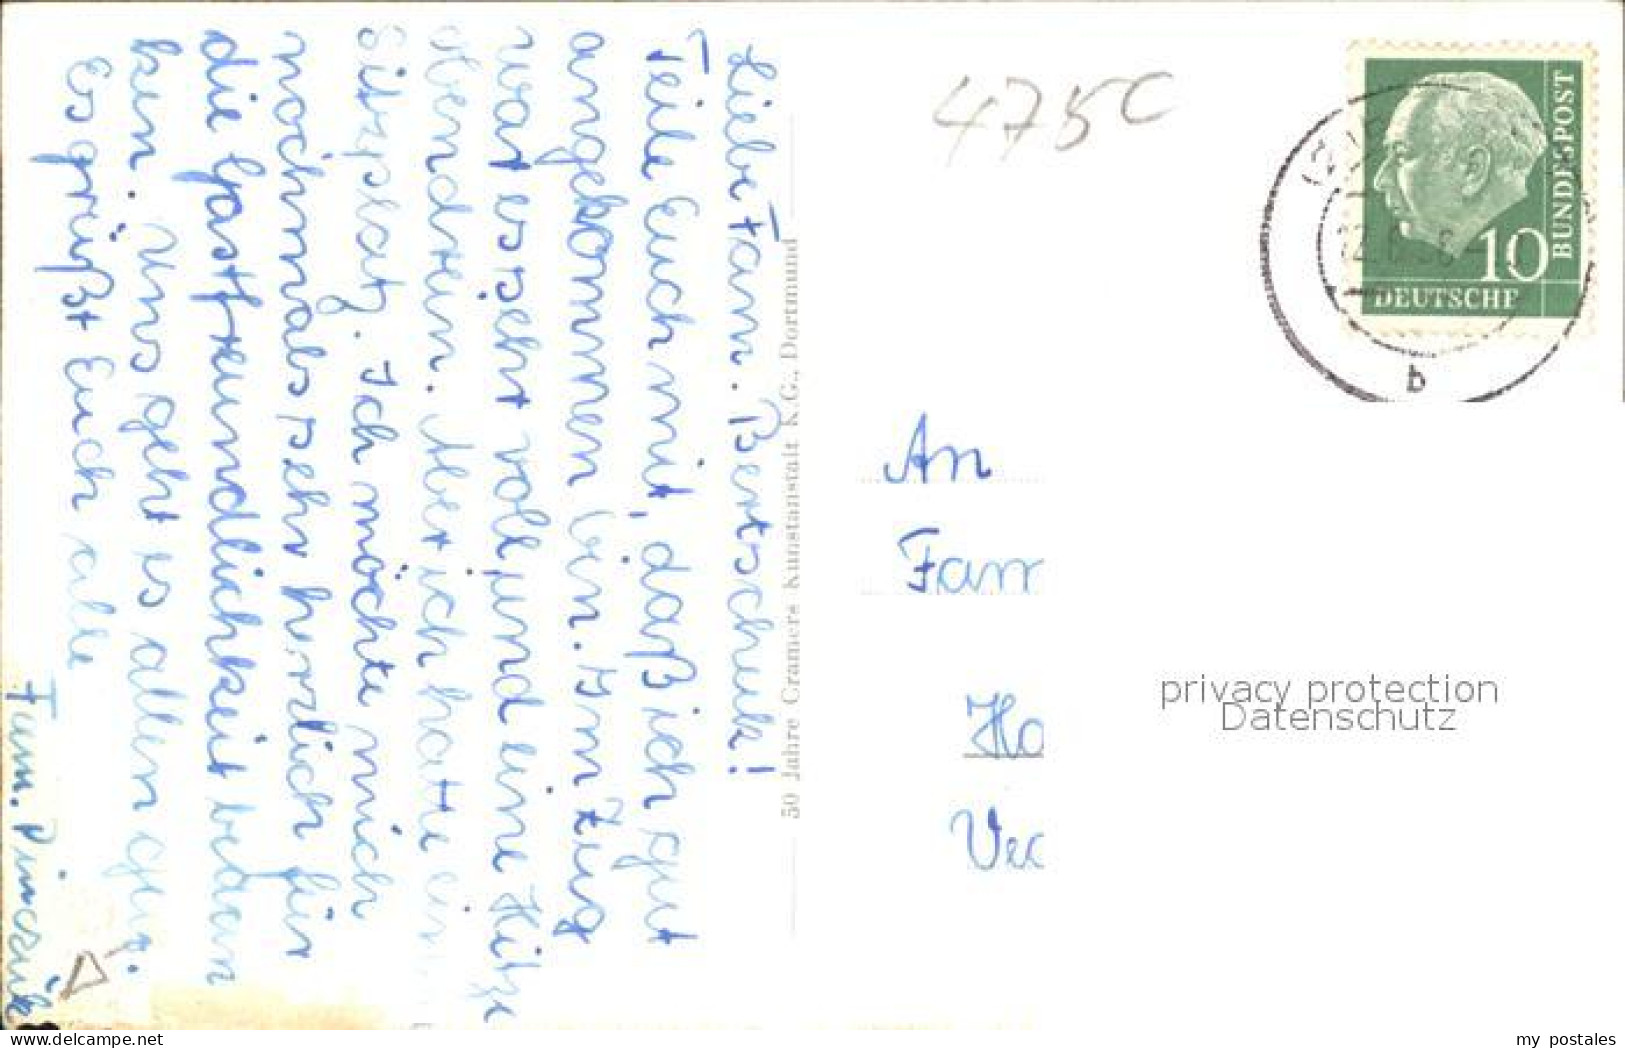 Liebe Fam. Bertschuk!
Teile Euch mit, daß ich gut
angekommen bin. Im Zug
war es sehr voll, und eine Hitze
obendrein. Aber ich hatte ein
Sitzplatz. Ich möchte mich
nochmals sehr herzlich für
die Gastfreundlichkeit bedan
ken. Uns geht es allen gut.
Es grüßt Euch alle
Fam.
50 Jahre Cramers Kunstanstalt K.G., Dortmund
475C
10
BUNDESPOST
DEUTSCHE
b
An
Fam
Ho
Vec
privacy protection
Datenschutz
www.delcampe.net
my_postales